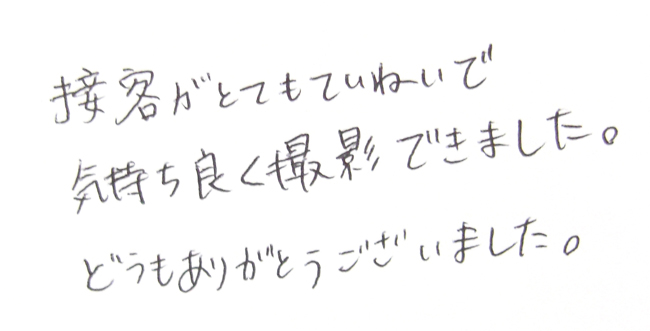 接客がとてもていねいで
気持ち良く撮影できました。
どうもありがとうございました。